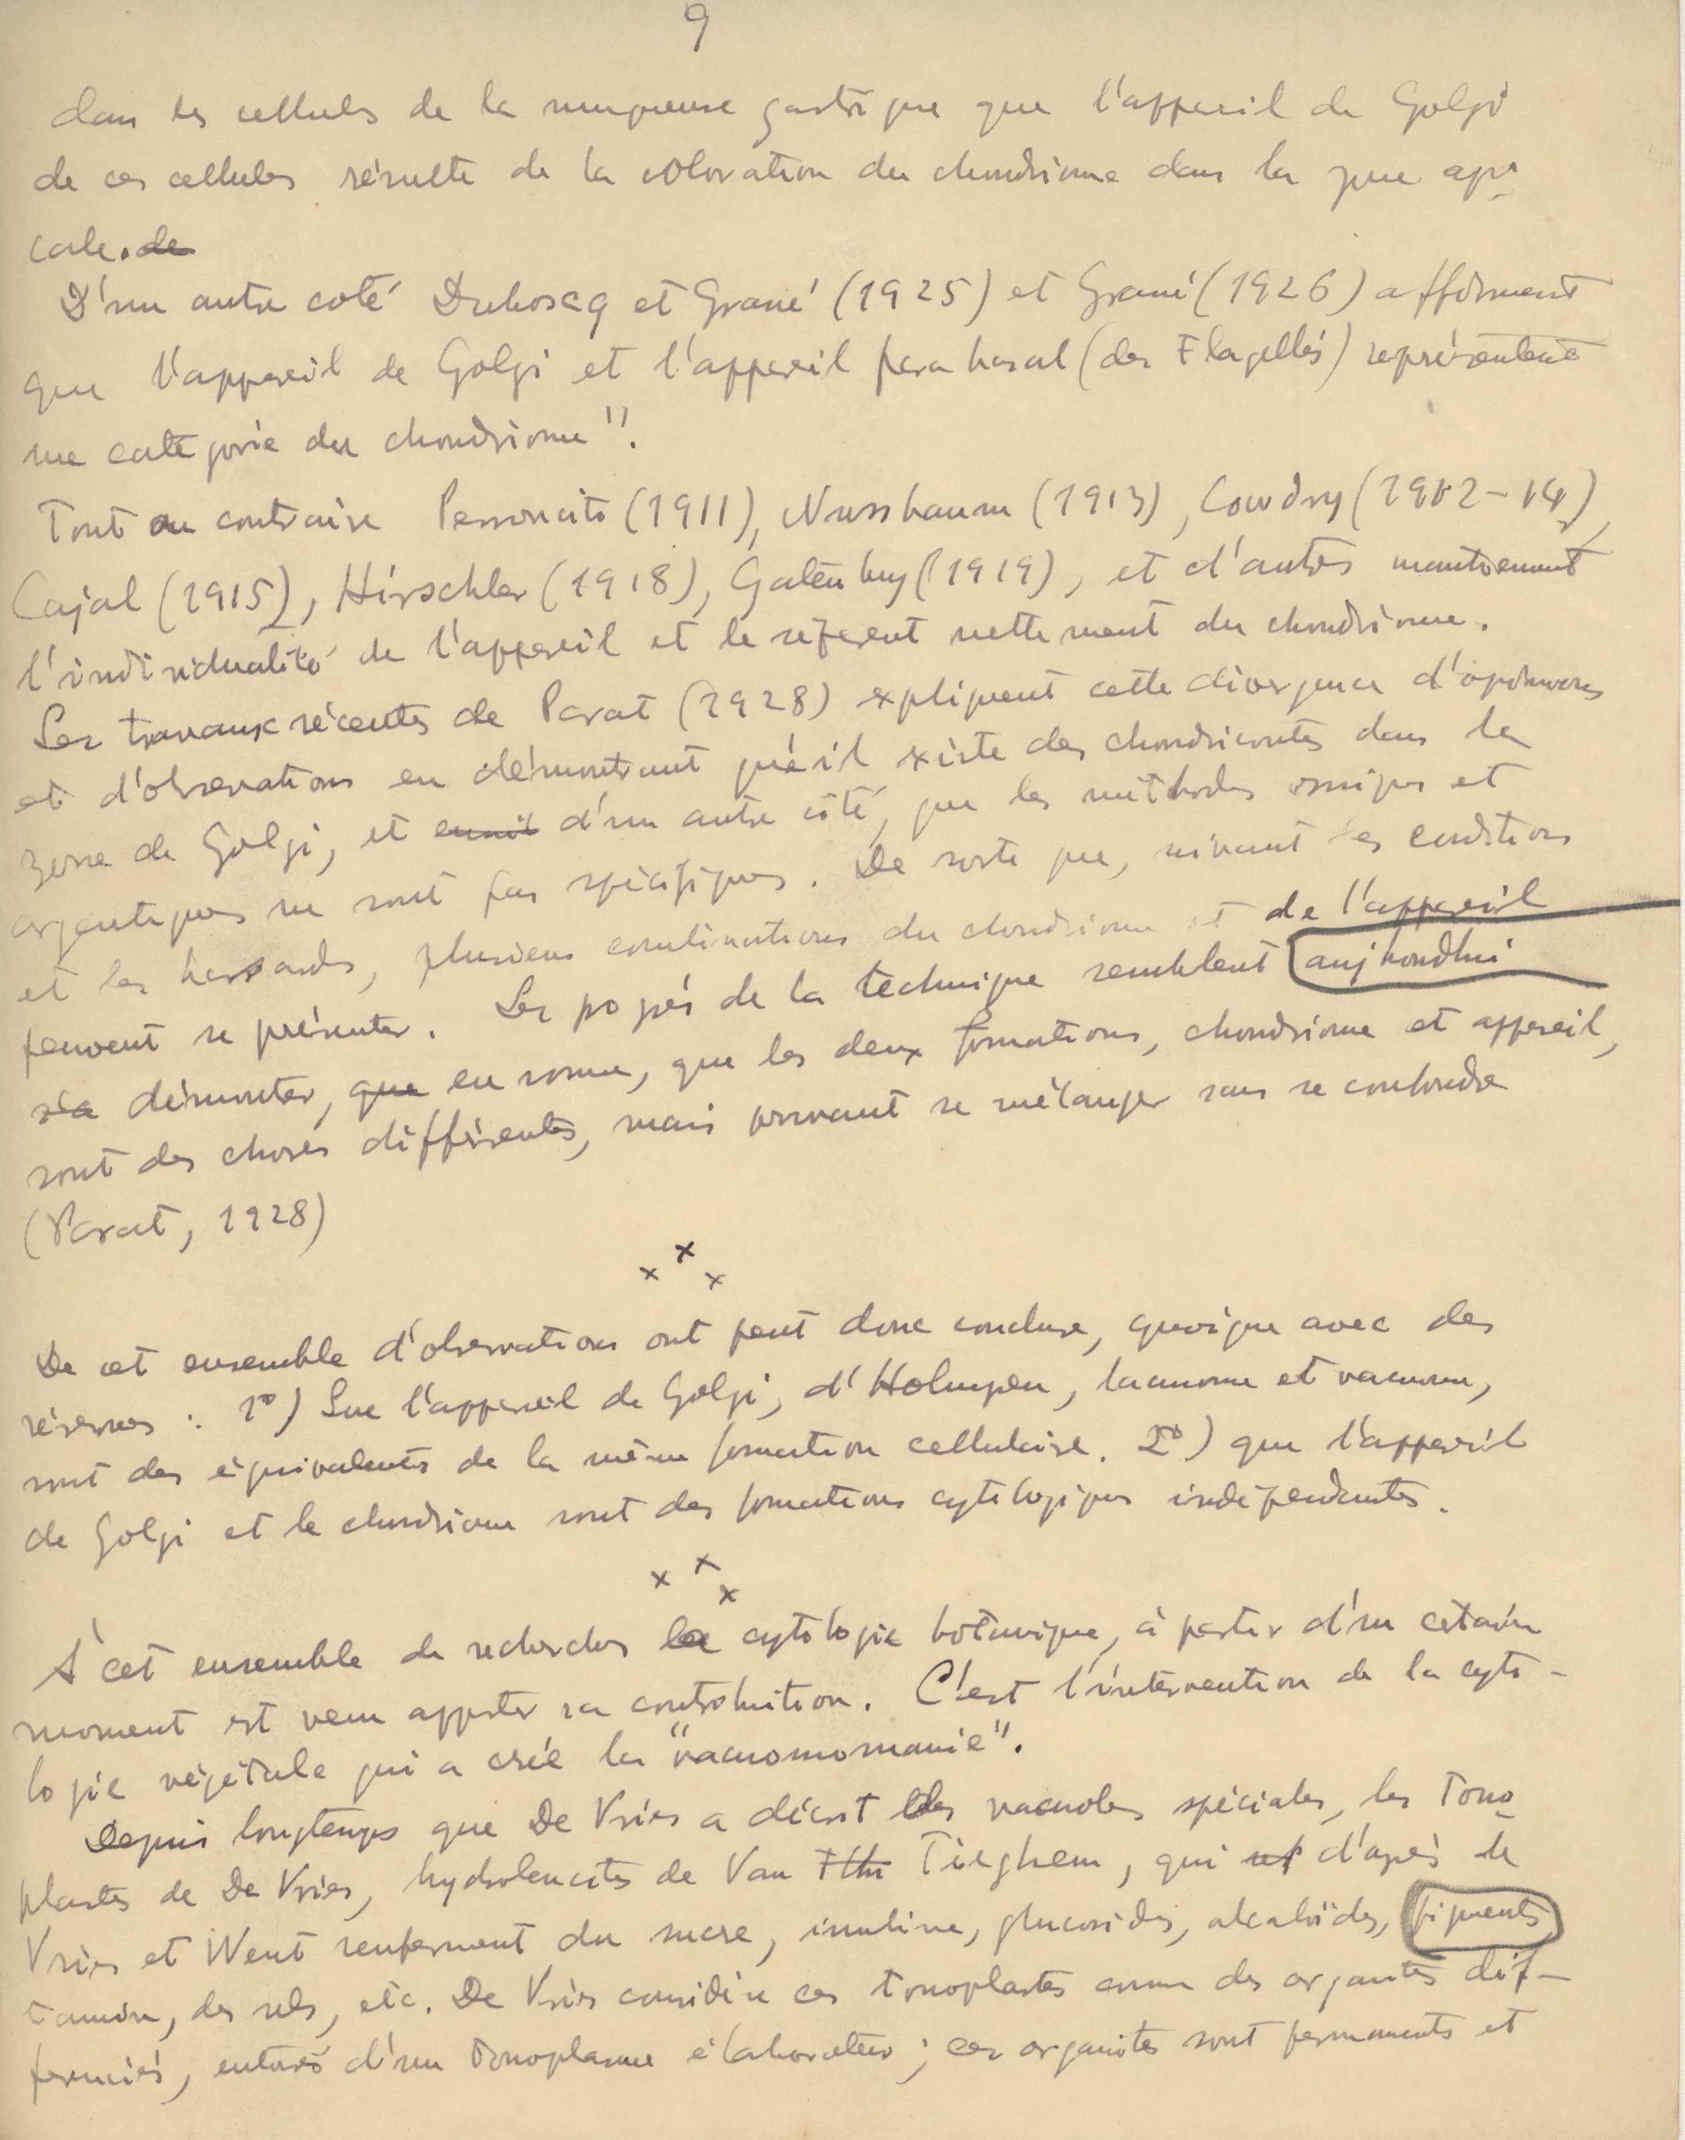 9
dans les cellules de la muqueuse gastrique que l'appareil de Golgi
de ces cellules résulte de la coloration du chondriome dans la zone api-
cale. de
D'un autre coté Duboscq et Grassé (1925) et Grassé (1926) affirment
que l'appareil de Golgi et l'appareil parabasal (des Flagellés) représentent
une catégorie du chondriome".
Tout au contraire Perroncito (1911), Nussbaum (1913), Cowdry (1912-14),
Cajal (1915), Hirschler (1918), Gatenby (1919), et d'autres maintiennent
l'individualité de l'appareil et le séparent nettement du chondriome.
Les travaux récents de Parat (1928) expliquent cette divergence d'opinions
et d'observations en démontrant qu'il existe des chondriocontes dans la
zone de Golgi, et d'un autre côté, que les méthodes osmiques et
argentiques ne sont pas spécifiques. De sorte que, suivant les conditions
et les hassards, plusieurs combinations du chondriome et de l'appareil
peuvent se présenter. Les progrès de la technique semblent aujhourdhui
démontrer, que en somme, que les deux formations, chondriome et appareil,
sont des choses différentes, mais pouvant se mélanger sans se confondre
(Parat, 1928)
x x x
De cet ensemble d'observations ont peut donc conclure, quoique avec des
réserves : 1º) Que l'appareil de Golgi, d'Holmgren, lacunome et vacuome,
sont des équivalents de la même formation cellulaire. 2º) que l'appareil
de Golgi et le chondriome sont des formations cytologiques indépendantes.
x x x
À cet ensemble de recherches la cytologie botanique, à partir d'un certain
moment est venu apporter sa contribution. C'est l'intervention de la cyto-
logie végétale qui a crée la "vacuomomanie".
Depuis longtemps que De Vries a décrit des vacuoles spéciales, les tono-
plastes de De Vries, hydroleucites de Van Tieghem, qui d'après de
Vries et Went renferment du sucre, inuline, glucosides, alcaloïdes, pigments
tannin, des sels, etc. De Vries considère ces tonoplastes comme des organites dif-
fenciés, entourés d'un tonoplasme élaborateur ; ces organites sont permanents et